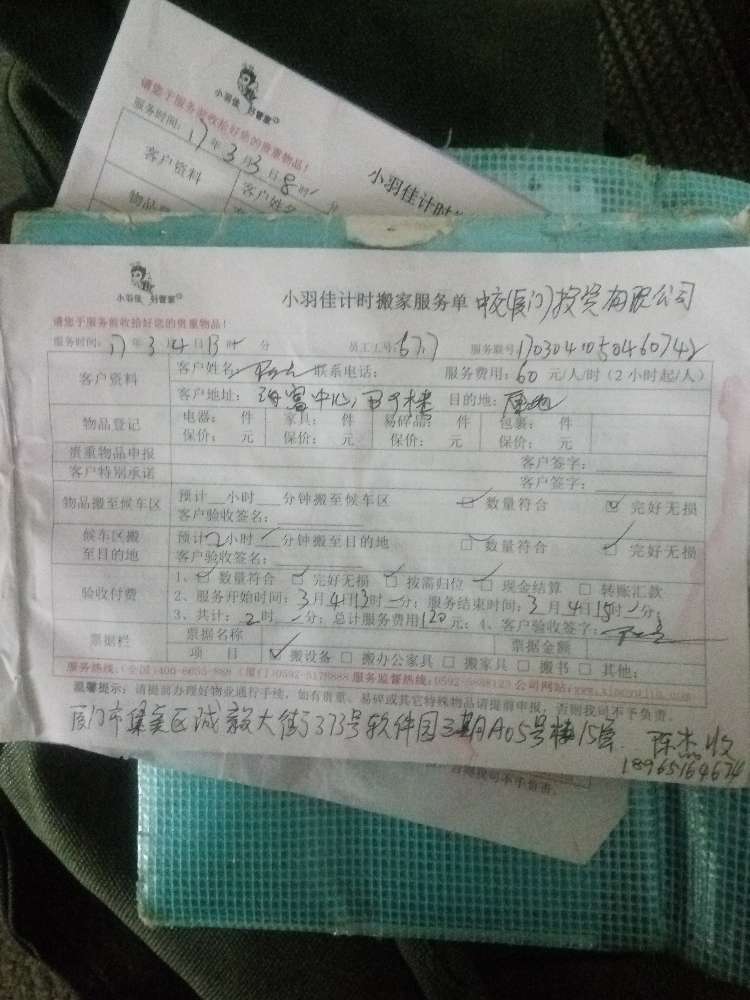 小羽佳 好管家
请您于服务前收拾好您的贵重物品！
服务时间：17年3月3日8时 分
客户资料 客户姓名
物品登
小羽佳计时
小羽佳 好管家
小羽佳计时搬家服务单 中交(厦门)投资有限公司
请您于服务前收拾好您的贵重物品！
服务时间：17年3月4日13时 分 员工工号：5717 服务联号：
客户资料 客户姓名： 联系电话： 服务费用：60元/人/时（2小时起/人）
客户地址：海富中心， 目的地：
物品登记 电器： 件 家具： 件 易碎品： 件 包裹： 件
保价： 元 保价： 元 保价： 元 保价： 元
贵重物品申报 客户签字：
客户特别承诺 客户签字：
物品搬至候车区 预计 小时 分钟搬至候车区 数量符合 完好无损
客户验收签名：
候车区搬至目的地 预计2小时 分钟搬至目的地 数量符合 完好无损
客户验收签名：
验收付费 1、 数量符合 完好无损 按需归位 现金结算 转账汇款
2、服务开始时间：3月4日13时 分；服务结束时间：3月4日15时 分；
3、共计：2时 分；总计服务费用120元；4、客户验收签字：
票据栏 票据名称 票据金额
项 目 搬设备 搬办公家具 搬家具 搬书 其他：
服务热线：(全国)400-8055-888 (厦门)0592-5178888 服务监督热线：0592-5898123 公司网站：www.xiaoyujia.com
温馨提示：请提前办理好物业通行手续，如有贵重、易碎或其它特殊物品请提前申报，否则我司不予负责。
厦门市集美区诚毅大街373号软件园三期A05号楼15层 陈杰收
18965164674
否则我司不予负责。